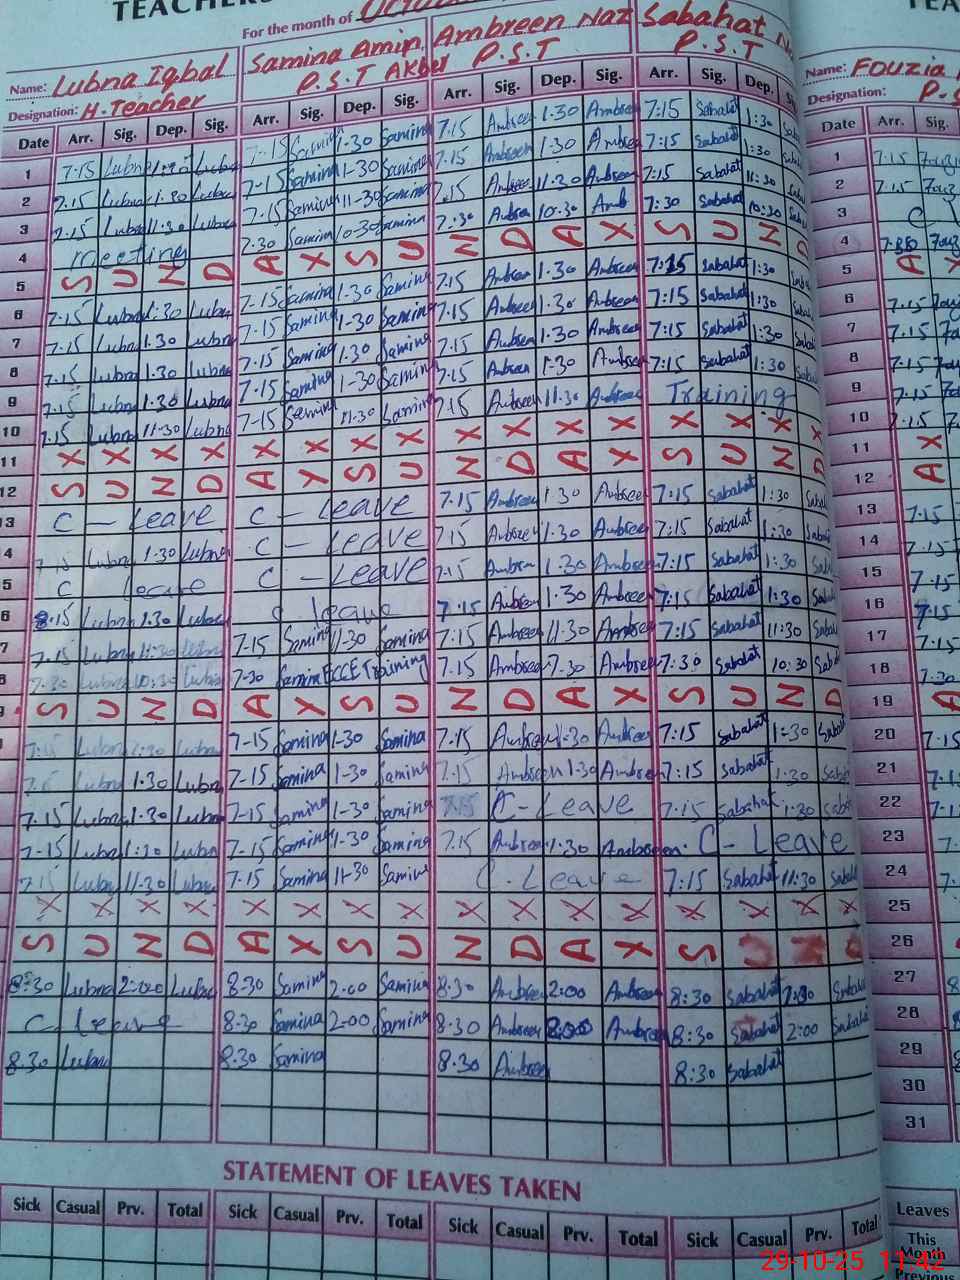 TEACHERS
For the month of October
Name: Lubna Iqbal Samina Amin Ambreen Naz Sabahat Name: Fouzia
Designation: H.Teacher P.S.T Akber P.S.T P.S.T Designation:
Date Arr. Sig. Dep. Sig. Arr. Sig. Dep. Sig. Arr. Sig. Dep. Sig. Arr. Sig. Dep. Arr. Sig.
1 7-15 Lubna Lubna 7-15 Samina 1-30 Samina 7.15 Ambreen 1.30 Ambreen 7:15 Sabahat 1:30 1 7.15
2 7.15 Lubna 1.30 Lubna 7-15 Samina 1-30 Samina 7.15 Ambreen 1.30 Ambreen 7:15 Sabahat 1:30 2 7.15
3 7.15 Lubna 11.30 Lubna 7-15 Samina 11-30 Samina 7.15 Ambreen 11.30 Ambreen 7:15 Sabahat 11:30 3 C
4 meeting 7.30 Samina 10-30 Samina 7.30 Ambreen 10.30 Amb 7:30 Sabahat 10:30 4
5 S U N D A X S U N D A X S U N D 5 A X
6 7.15 Lubna 1:30 Lubna 7-15 Samina 1-30 Samina 7.15 Ambreen 1.30 Ambreen 7:15 Sabahat 1:30 6 7.15
7 7.15 Lubna 1.30 Lubna 7-15 Samina 1-30 Samina 7.15 Ambreen 1.30 Ambreen 7:15 Sabahat 1:30 7 7.15
8 7.15 Lubna 1.30 Lubna 7.15 Samina 1.30 Samina 7.15 Ambreen 1.30 Ambreen 7:15 Sabahat 1:30 8 7.15
9 7.15 Lubna 1.30 Lubna 7-15 Samina 1-30 Samina 7.15 Ambreen 1.30 Ambreen 7:15 Sabahat 1:30 9 7.15
10 7.15 Lubna 11-30 Lubna 7-15 Samina 11-30 Samina 7.15 Ambreen 11.30 Ambreen Training 10 7.15
11 X X X X X X X X X X X X X X X X 11 X
12 S U N D A X S U N D A X S U N D 12 A X
13 C - Leave C - Leave 7.15 Ambreen 1.30 Ambreen 7:15 Sabahat 1:30 13 7.15
4 7.15 Lubna 1.30 Lubna C - Leave 7.15 Ambreen 1.30 Ambreen 7:15 Sabahat 1:30 14 7.15
5 C leave C - Leave 7.15 Ambreen 1.30 Ambreen 7:15 Sabahat 1:30 15 7.15
6 8.15 Lubna 1.30 Lubna C leave 7.15 Ambreen 1.30 Ambreen 7:15 Sabahat 1:30 16 7.15
7 7.15 Lubna 11:30 7-15 Samina 11-30 Samina 7.15 Ambreen 11.30 Ambreen 7:15 Sabahat 11:30 17 7.15
8 7.30 Lubna 10:30 Lubna 7-30 Samina ECCE Training 7.15 Ambreen 7.30 Ambreen 7:30 Sabahat 10:30 18 7.30
9 S U N D A X S U N D A X S U N D 19 A
7:15 Lubna 1.30 Lubna 7-15 Samina 1-30 Samina 7:15 Ambreen 1:30 Ambreen 7:15 Sabahat 1:30 20 7.15
Lubna 1:30 Lubna 7-15 Samina 1-30 Samina 7.15 Ambreen 1.30 Ambreen 7:15 Sabahat 1:30 21
7.15 Lubna 1.30 Lubna 7-15 Samina 1-30 Samina C - Leave 7:15 Sabahat 1:30 22
7-15 Lubna 1:30 Lubna 7-15 Samina 1-30 Samina 7.15 Ambreen 1.30 Ambreen. C - Leave 23
7.15 Lubna 11-30 Lubna 7.15 Samina 11-30 Samina C - Leave 7:15 Sabahat 11:30 24
X X X X X X X X X X X X X X X X 25
S U N D A X S U N D A X S U 26
8:30 Lubna 2:00 Lubna 8-30 Samina 2-00 Samina 8.30 Ambreen 2:00 Ambreen 8:30 Sabahat 27
C leave 8.30 Samina 2-00 Samina 8.30 Ambreen Ambreen 8:30 Sabahat 2:00 Sabahat 28
8.30 Lubna 8.30 Samina 8.30 Ambreen 8:30 Sabahat 29
30
31
STATEMENT OF LEAVES TAKEN
Sick Casual Prv. Total Sick Casual Prv. Total Sick Casual Prv. Total Sick Casual Prv. Total Leaves
This Month
Previous
29-10-25 11:42